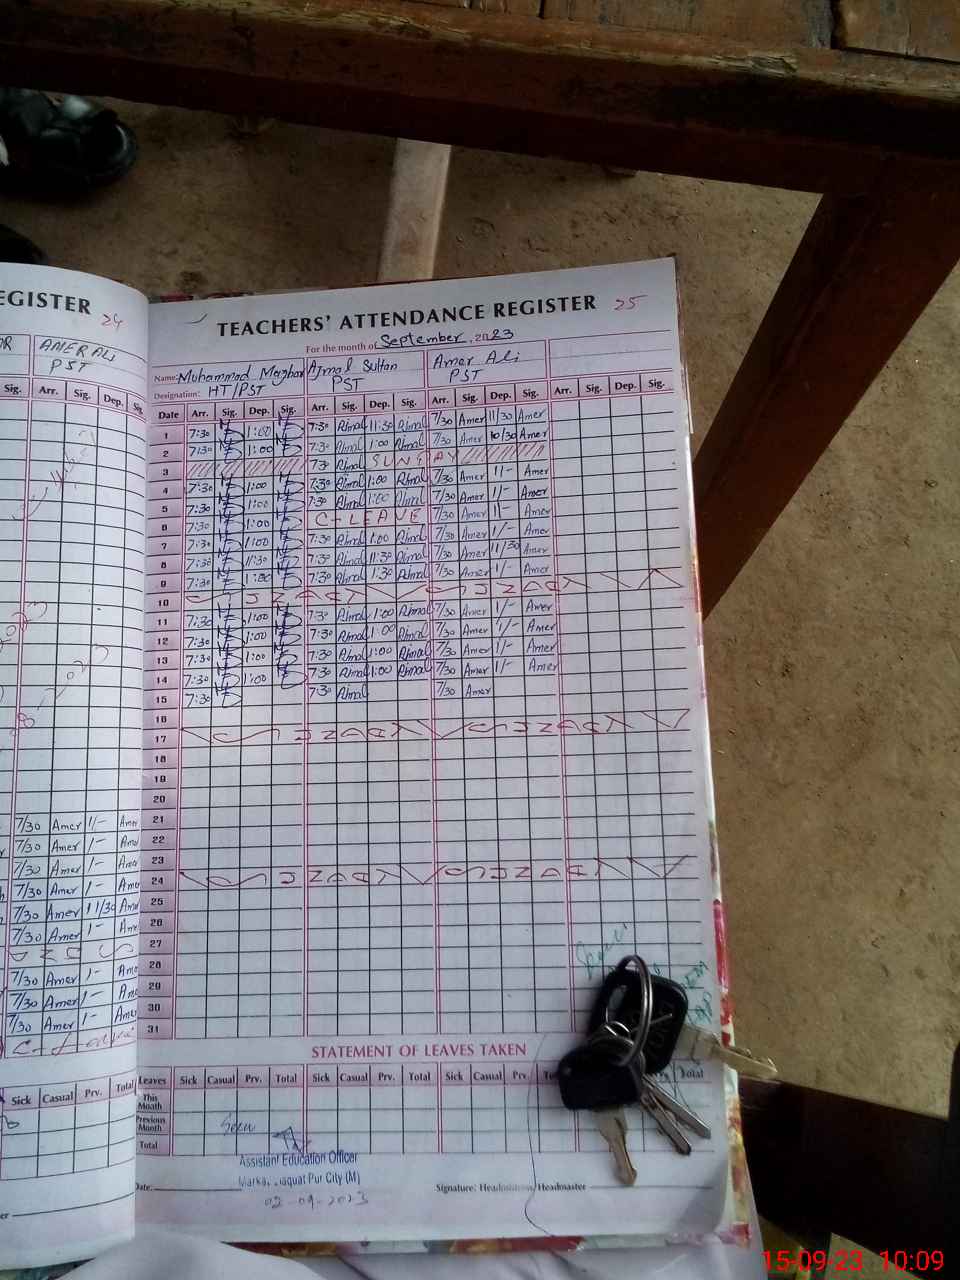 EGISTER 24
AMER ALI
PST
Sig. Arr. Sig. Dep. Sig
7/30 Amer 1/- Ame
7/30 Amer 1- Ame
7/30 Amer 1- Ame
7/30 Amer 1- Ame
7/30 Amer 11/30 Ame
7/30 Amer 1- Ame
7/30 Amer 1- Ame
7/30 Amer 1- Ame
7/30 Amer 1- Ame
Sick Casual Prv. Total
TEACHERS' ATTENDANCE REGISTER 25
For the month of September, 2023
Name: Muhammad Mazhar Ajmal Sultan Amer Ali
Designation: HT/PST PST PST
Date Arr. Sig. Dep. Sig. Arr. Sig. Dep. Sig. Arr. Sig. Dep. Sig. Arr. Sig. Dep. Sig.
1 7:30 1:00 7:30 Ajmal 11:30 Ajmal 7/30 Amer 11/30 Amer
2 7:30 1:00 7:30 Ajmal 1:00 Ajmal 7/30 Amer 10/30 Amer
3 7:30 Ajmal SUNDAY
4 7:30 1:00 7:30 Ajmal 1:00 Ajmal 7/30 Amer 1/- Amer
5 7:30 1:00 7:30 Ajmal 1:00 Ajmal 7/30 Amer 1/- Amer
6 7:30 1:00 C-LEAVE 7/30 Amer 1/- Amer
7 7:30 1:00 7:30 Ajmal 1:00 Ajmal 7/30 Amer 1/- Amer
8 7:30 11:30 7:30 Ajmal 11:30 Ajmal 7/30 Amer 11/30 Amer
9 7:30 1:00 7:30 Ajmal 1:30 Ajmal 7/30 Amer 1/- Amer
10 SUNDAY SUNDAY
11 7:30 1:00 7:30 Ajmal 1:00 Ajmal 7/30 Amer 1/- Amer
12 7:30 1:00 7:30 Ajmal 1:00 Ajmal 7/30 Amer 1/- Amer
13 7:30 1:00 7:30 Ajmal 1:00 Ajmal 7/30 Amer 1/- Amer
14 7:30 1:00 7:30 Ajmal 1:00 Ajmal 7/30 Amer 1/- Amer
15 7:30 7:30 Ajmal 7/30 Amer
16
17 SUNDAY SUNDAY
18
19
20
21
22
23
24 SUNDAY SUNDAY
25
26
27
28
29
30
31
STATEMENT OF LEAVES TAKEN
Leaves Sick Casual Prv. Total Sick Casual Prv. Total Sick Casual Prv. Total
This Month
Previous Month
Total
Seen
Assistant Education Officer
Markaz Liaquat Pur City (M)
02-09-2023
Date. Signature: Headmistress/Headmaster
15-09-23 10:09